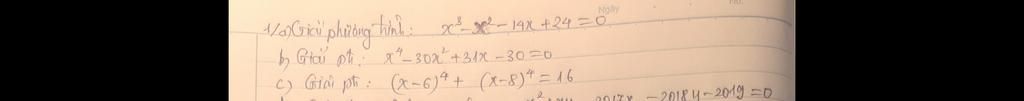 Ngày
1/a) Giải phương trình: x³ - x² - 14x + 24 = 0
b) Giải pt: x⁴ - 30x² + 31x - 30 = 0
c) Giải pt: (x-6)⁴ + (x-8)⁴ = 16
2017x - 2018y - 2019 = 0